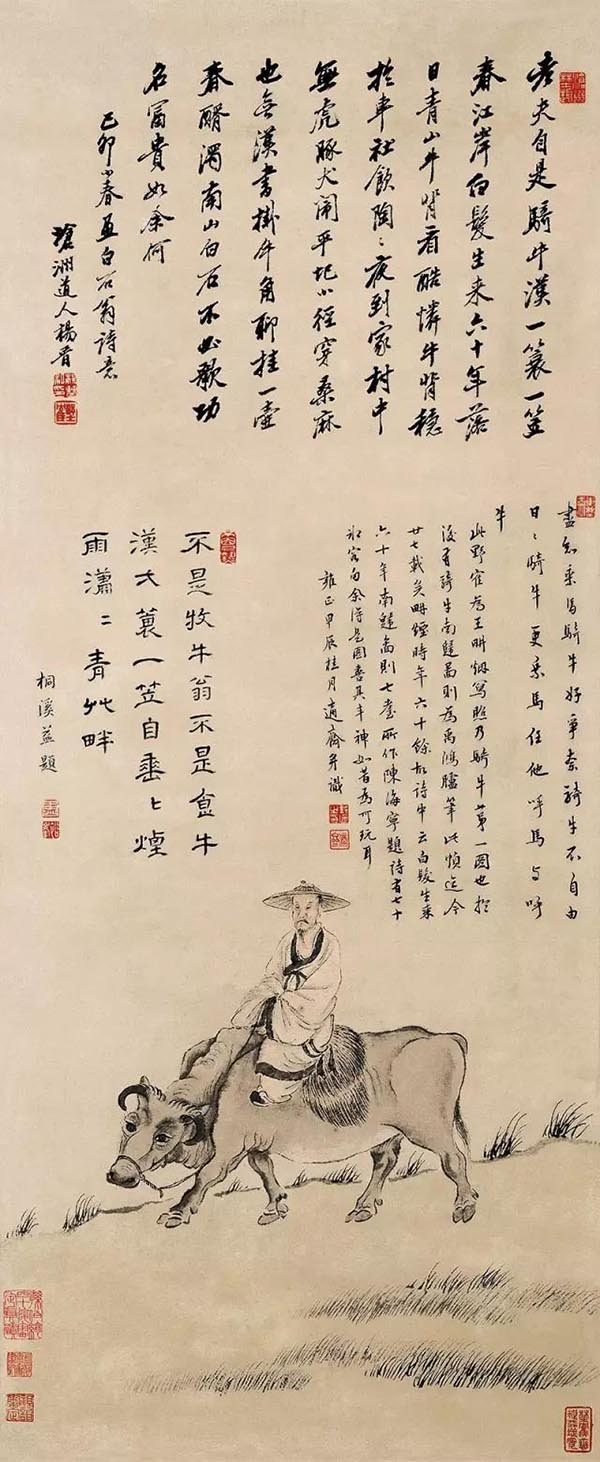 老夫自是騎牛漢一蓑一笠
春江岸白髮生来六十年落
日青山牛背看酷憐牛背穩
於車社飲陶〻夜到家村中
無虎豚犬鬧平圯小徑穿桑麻
也無漢書掛牛角聊挂一壺
春醑濁南山白石不必歌功
名富貴如余何
己卯小春画白石翁詩意
洲道人楊晋
盡知乘馬騎牛好爭柰騎牛不自由
日〻騎牛更乘馬任他呼馬与呼
牛
此野崔為王畊烟寫照乃騎牛苐一圖也於
後有騎牛南還啚則為禹鴻臚筆此幀迄今
廿七載矣畊煙時年六十餘故詩中云白髮生来
六十年南還啚則七耋所作陳海寧題詩有七十
客句余得是圖喜其丰神如昔為可玩耳
雍正甲辰桂月適齋并識
不是牧牛翁不是食牛
漢蓑一笠自垂〻煙
雨瀟〻青艸畔
桐溪益題